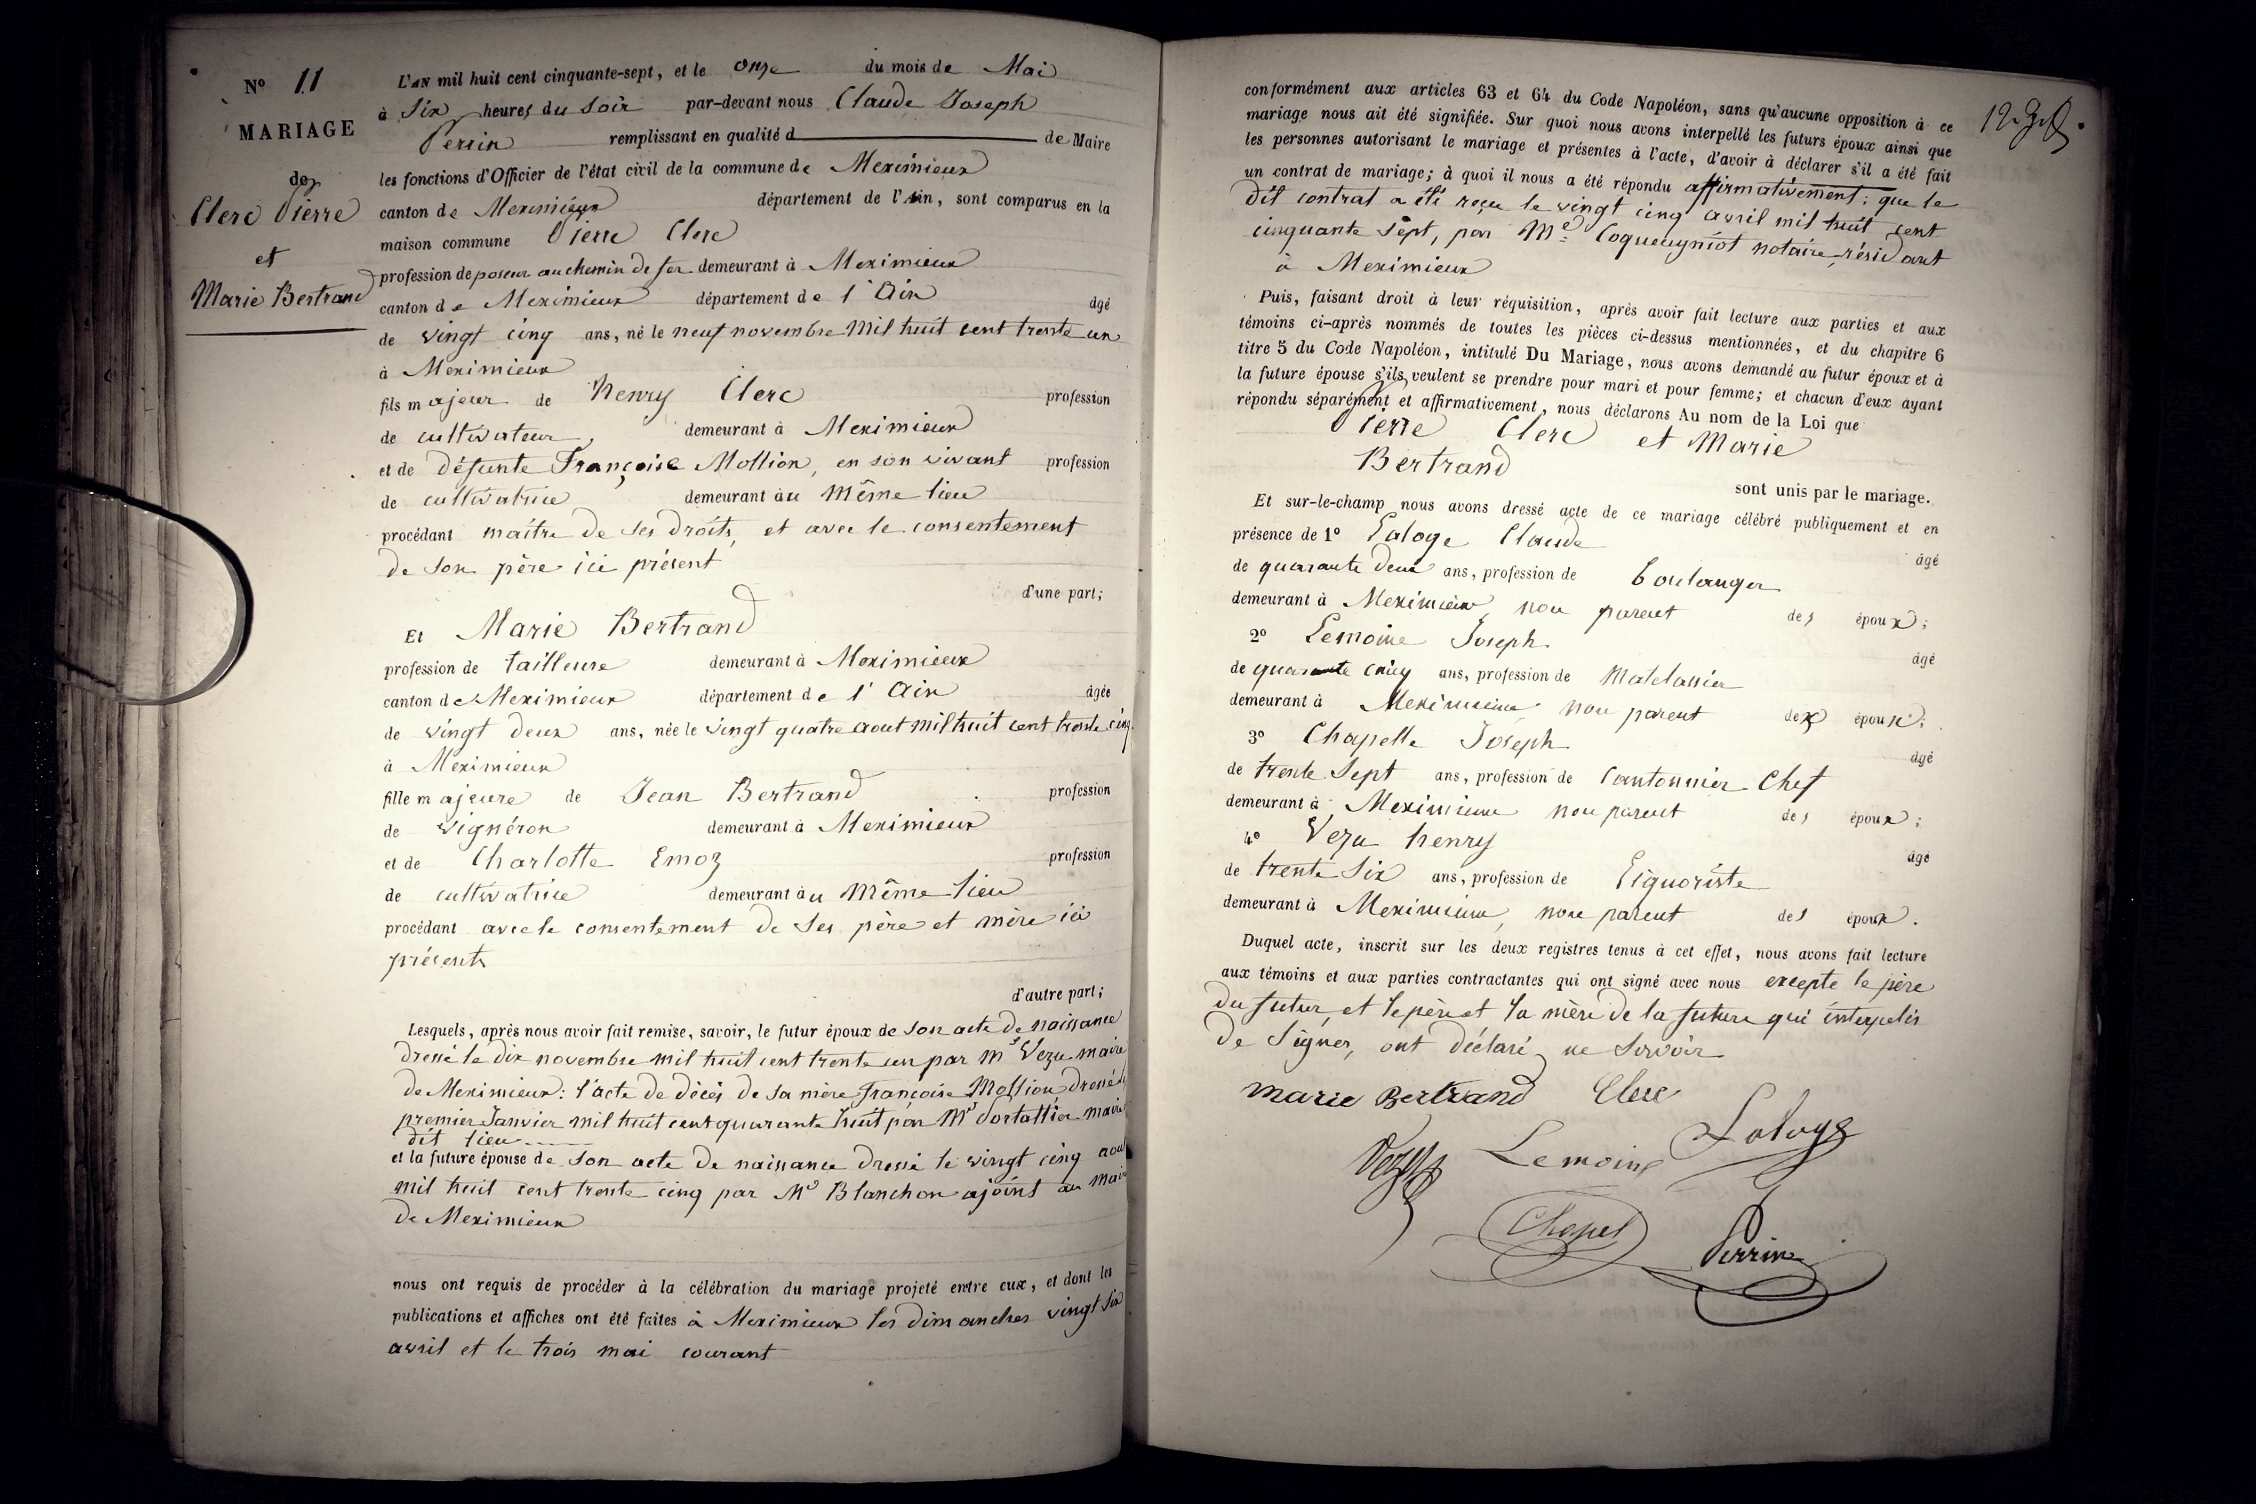 N° 11
MARIAGE
de
Clerc Pierre
et
Marie Bertrand
L'AN mil huit cent cinquante-sept, et le onze du mois de Mai
à Six heures du Soir par-devant nous Claude Joseph
Perrin remplissant en qualité d de Maire
les fonctions d'Officier de l'état civil de la commune de Meximieux
canton de Meximieux département de l'Ain, sont comparus en la
maison commune Pierre Clerc
profession de poseur au chemin de fer demeurant à Meximieux
canton de Meximieux département de l'Ain âgé
de vingt cinq ans, né le neuf novembre mil huit cent trente un
à Meximieux
fils majeur de Henry Clerc profession
de cultivateur, demeurant à Meximieux
et de défunte Françoise Mollion, en son vivant profession
de cultivatrice demeurant au même lieu
procédant maître de ses droits, et avec le consentement
de son père ici présent
d'une part;
Et Marie Bertrand
profession de tailleuse demeurant à Meximieux
canton de Meximieux département de l'Ain âgée
de vingt deux ans, née le vingt quatre aout mil huit cent trente cinq
à Meximieux
fille majeure de Jean Bertrand profession
de vignéron demeurant à Meximieux
et de Charlotte Emoz profession
de cultivatrice demeurant au même lieu
procédant avec le consentement de ses père et mère ici
présents
d'autre part;
Lesquels, après nous avoir fait remise, savoir, le futur époux de son acte de naissance
dressé le dix novembre mil huit cent trente un par Mr Vezu maire
de Meximieux: l'acte de décès de sa mère Françoise Mollion, dressé le
premier Janvier mil huit cent quarante huit par Mr Portallier maire
dit lieu
et la future épouse de son acte de naissance dressé le vingt cinq aout
mil huit cent trente cinq par Mr Blanchon ajoint au maire
de Meximieux
nous ont requis de procéder à la célébration du mariage projeté entre eux, et dont les
publications et affiches ont été faites à Meximieux les dimanches vingt six
avril et le trois mai courant
conformément aux articles 63 et 64 du Code Napoléon, sans qu'aucune opposition à ce
mariage nous ait été signifiée. Sur quoi nous avons interpellé les futurs époux ainsi que
les personnes autorisant le mariage et présentes à l'acte, d'avoir à déclarer s'il a été fait
un contrat de mariage; à quoi il nous a été répondu affirmativement; que le
dit contrat a été reçu le vingt cinq avril mil huit cent
cinquante sept, par Me Coqueugniot notaire, résidant
à Meximieux
Puis, faisant droit à leur réquisition, après avoir fait lecture aux parties et aux
témoins ci-après nommés de toutes les pièces ci-dessus mentionnées, et du chapitre 6
titre 5 du Code Napoléon, intitulé Du Mariage, nous avons demandé au futur époux et à
la future épouse s'ils veulent se prendre pour mari et pour femme; et chacun d'eux ayant
répondu séparément et affirmativement, nous déclarons Au nom de la Loi que
Pierre Clerc et Marie
Bertrand
sont unis par le mariage.
Et sur-le-champ nous avons dressé acte de ce mariage célébré publiquement et en
présence de 1° Laloge Claude âgé
de quarante deux ans, profession de boulanger
demeurant à Meximieux non parent des époux;
2° Lemoine Joseph âgé
de quarante cinq ans, profession de Matelassier
demeurant à Meximieux non parent des époux;
3° Chapelle Joseph âgé
de trente sept ans, profession de Cantonnier Chef
demeurant à Meximieux non parent des époux;
4° Vezu henry âgé
de trente six ans, profession de Liquoriste
demeurant à Meximieux, non parent des époux.
Duquel acte, inscrit sur les deux registres tenus à cet effet, nous avons fait lecture
aux témoins et aux parties contractantes qui ont signé avec nous excepte le père
du futur, et le père et la mère de la future qui interpelés
de signer, ont déclaré ne savoir
Marie Bertrand Clerc
Laloge
Vezu Lemoine
Chapel
Perrin